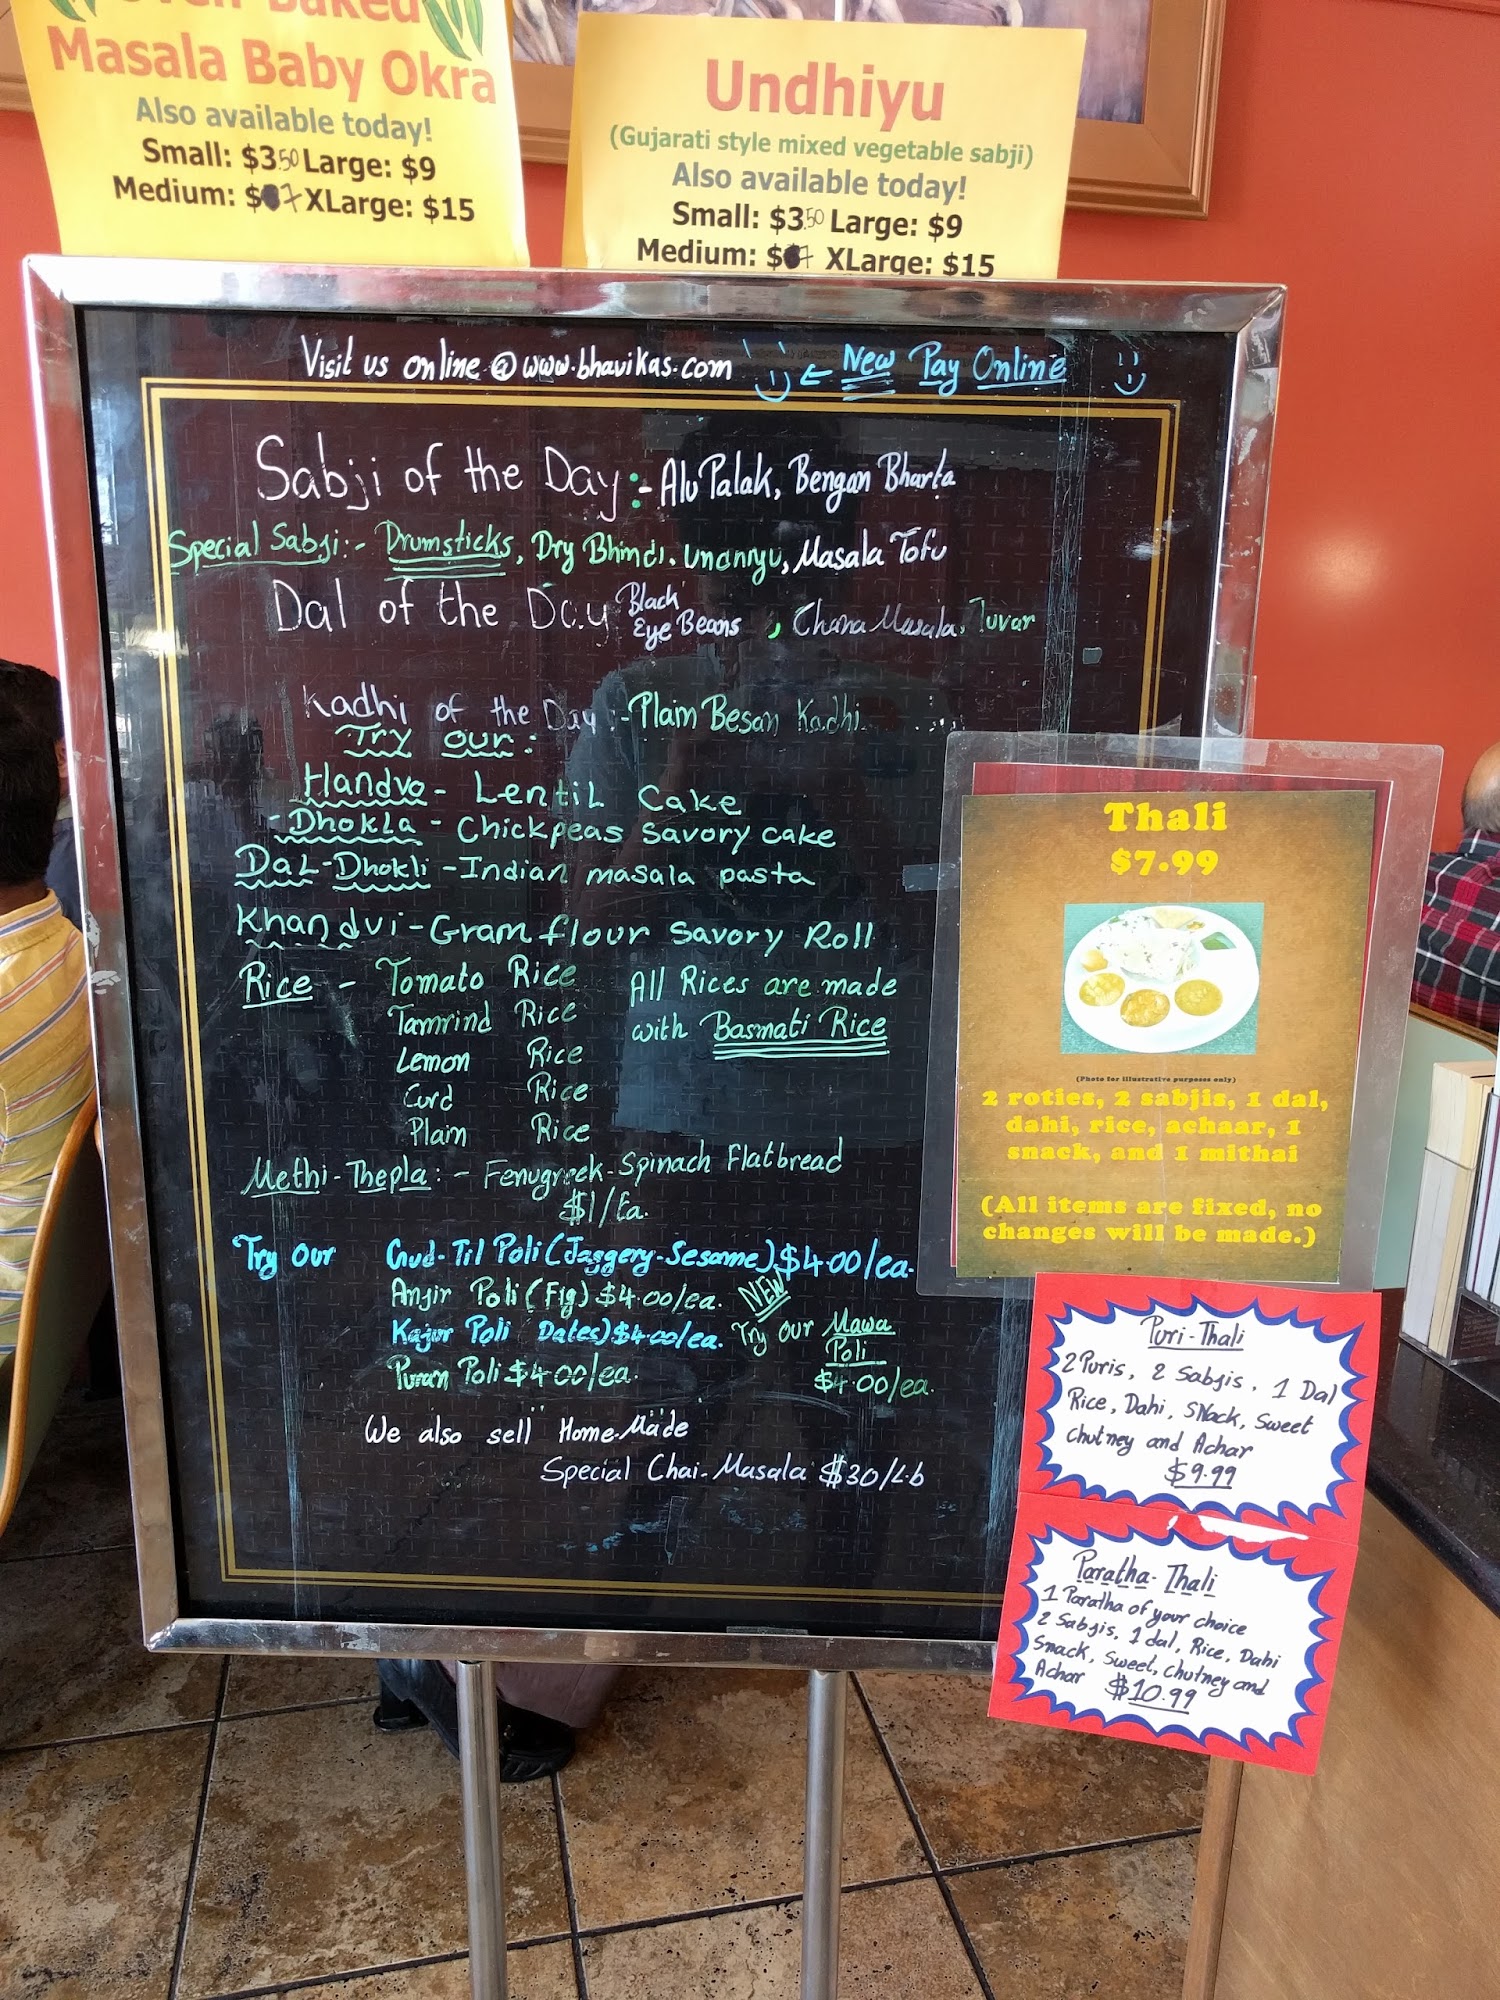 Baked
Masala Baby Okra
Also available today!
Small: $3.50 Large: $9
Medium: $7 XLarge: $15
Undhiyu
(Gujarati style mixed vegetable sabji)
Also available today!
Small: $3.50 Large: $9
Medium: $7 XLarge: $15
Visit us online @ www.bhavikas.com ← New Pay Online
Sabji of the Day :- Alu Palak, Bengan Bharta
Special Sabji:- Drumsticks, Dry Bhindi, Masala Tofu
Dal of the Day Black Eye Beans, Chana Masala, Tuvar
Kadhi of the Day :- Plain Besan Kadhi
Try our:
Handvo - Lentil Cake
- Dhokla - Chickpeas savory cake
Dal-Dhokli - Indian masala pasta
Khandvi - Gram flour savory Roll
Rice - Tomato Rice
Tamrind Rice
Lemon Rice
Curd Rice
Plain Rice
All Rices are made
with Basmati Rice
Methi-Thepla:- Fenugreek-Spinach flatbread
$1/Ea.
Try our Gud-Til Poli (Jaggery-Sesame) $4.00/ea.
Anjir Poli (Fig) $4.00/ea.
Kajur Poli Dates) $4.00/ea.
Puran Poli $4.00/ea.
NEW
Try our Mawa
Poli
$4.00/ea.
We also sell Home-Made
Special Chai-Masala $30/Lb
Thali
$7.99
(Photo for illustrative purposes only)
2 roties, 2 sabjis, 1 dal,
dahi, rice, achaar, 1
snack, and 1 mithai
(All items are fixed, no
changes will be made.)
Puri-Thali
2 Puris, 2 Sabjis, 1 Dal
Rice, Dahi, SNack, Sweet
chutney and Achar
$9.99
Paratha-Thali
1 Paratha of your choice
2 Sabjis, 1 dal, Rice, Dahi
Snack, Sweet, chutney and
Achar $10.99